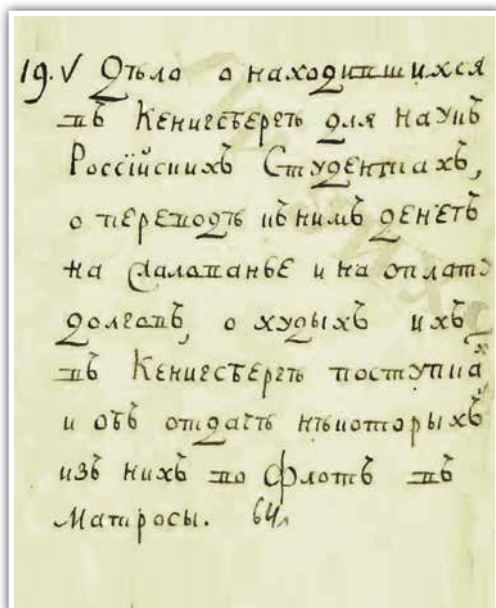 19. V Дѣло о находившихся
въ Кенигсбергѣ для наукъ
Россїйскихъ Студентахъ,
о переводѣ къ нимъ денегъ
на Жалованье и на оплату
долговъ, о худыхъ ихъ
въ Кенигсбергѣ поступка
х
и объ отдачѣ нѣкоторыхъ
изъ нихъ во флотъ въ
Матросы. 64л